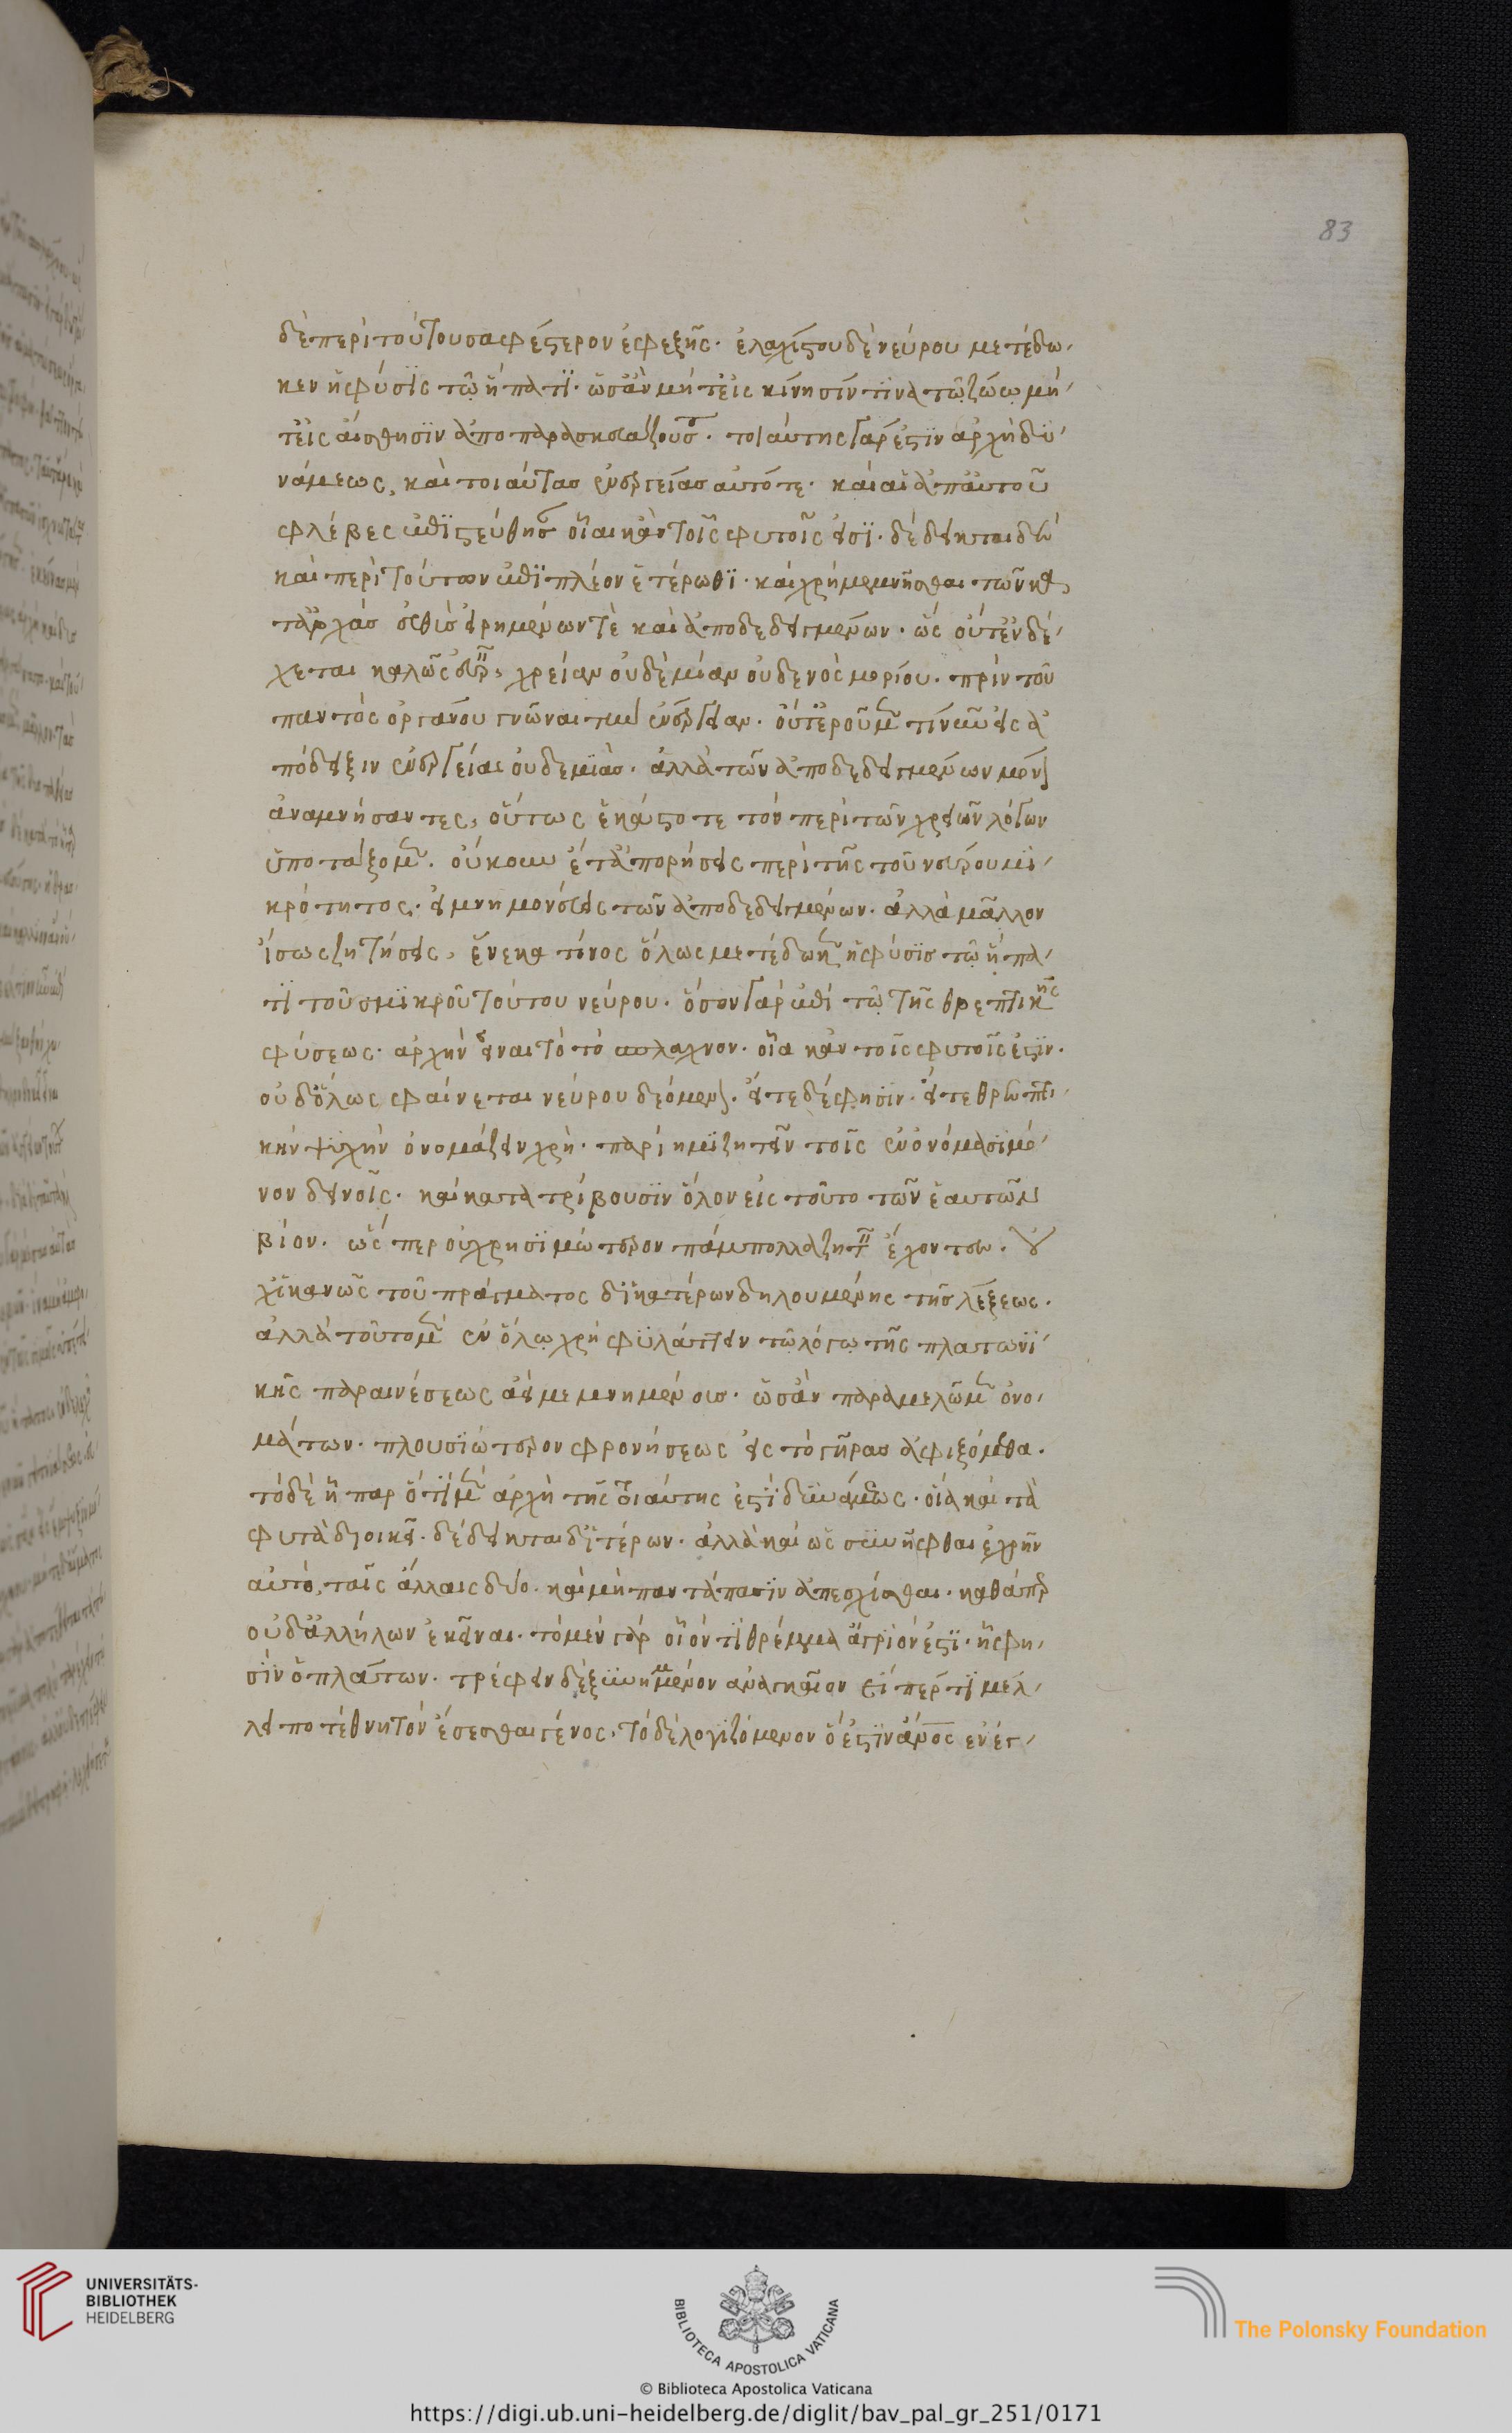 83
δὲ περὶ τούτου σαφέστερον ἐφεξῆς· ἐλαχίστου δὲ νεύρου μετέδω-
κεν ἡ φύσις τῷ ἥπατι· ὡσὰν μήτ' εἰς κίνησίν τινα τῷ ζώῳ μή-
τ' εἰς αἴσθησιν ἀποπαρασκευάζουσα· τοιαύτης γάρ ἐστιν ἀρχὴ δυ-
νάμεως, καὶ τοιαύτας ἐνεργείας αὐτό τε· καὶ αἱ ἀπ' αὐτοῦ
φλέβες ἐπιστεύθησαν οἷαι κἂν τοῖς φυτοῖς εἰσί· δέδεικται δὲ
καὶ περὶ τούτων ἐπὶ πλέον ἑτέρωθι· καὶ χρὴ μεμνῆσθαι τῶν κα-
τ' ἀρχὰς εὐθὺς εἰρημένων τὲ καὶ ἀποδεδειγμένων· ὡς οὔτ' ἐνδέ-
χεται καλῶς εὑρεῖν χρείαν οὐδεμίαν οὐδενὸς μορίου· πρὶν τοῦ
παντὸς ὀργάνου γνῶναι τὴν ἐνέργειαν· οὔτ' ἐροῦμεν τὶν εἰς ἀ
πόδειξιν ἐνεργείας οὐδεμιᾶς· ἀλλὰ τῶν ἀποδεδειγμένων μόνον
ἀναμνήσαντες, οὕτως ἑκάστοτε τὸν περὶ τῶν χρειῶν λόγον
ὑποτάξομεν. οὔκουν ἔτ' ἀπορήσεις περὶ τῆς τοῦ νεύρου μι-
κρότητος. εἰ μνημονεύεις τῶν ἀποδεδειγμένων. ἀλλὰ μᾶλλον
ἴσως ζητήσεις, ἕνεκα τίνος ὅλως μετέδωκεν ἡ φύσις τῷ ἥπα-
τι τοῦ σμικροῦ τούτου νεύρου. ὅσον γὰρ ἐπὶ τῷ τῆς θρεπτικῆς
φύσεως· ἀρχὴν εἶναι τὸ τὸ σπλάχνον. οἵα κἂν τοῖς φυτοῖς ἐστιν.
οὐδ' ὅλως φαίνεται νεύρου δεόμενον. εἴτε δὲ φησιν. εἴτε θρεπτι-
κὴν ψυχὴν ὀνομάζειν χρὴ· παρίημι ζητεῖν τοῖς ἐν ὀνόμασι μό-
νον δεινοῖς. καὶ κατατρίβουσιν ὅλον εἰς τοῦτο τῶν ἑαυτῶν
βίον. ὥσπερ οὐ χρησιμώτερον πάμπολλα ζητεῖν ἔχοντων. οὐ
χ ἱκανῶς τοῦ πράγματος δι' ἑκατέρων δηλουμένης τῆς λέξεως.
ἀλλὰ τοῦτο μὲν ἐν ὅλῳ χρὴ φυλάττειν τῷ λόγῳ τῆς πλατωνι-
κῆς παραινέσεως ἀεὶ μεμνημένοις. ὡσὰν παραμελῶμεν ὀνο-
μάτων. πλουσιώτερον φρονήσεως εἰς τὸ γῆρας ἀφιξόμεθα.
τὸ δὲ ἧπαρ ὅτι μὲν ἀρχὴ τῆς τοιαύτης ἐστὶ δυνάμεως. οἵα καὶ τὰ
φυτὰ διοικεῖ. δέδεικται δι' ἑτέρων. ἀλλὰ καὶ ὡς συνῆφθαι ἐχρῆν
αὐτό, ταῖς ἄλλαις δύο. καὶ μὴ παντάπασιν ἀπεσχίσθαι. καθάπερ
οὐδ' ἀλλήλων ἐκεῖναι. τὸ μὲν γὰρ οἷόν τι θρέμμα ἄγριόν ἐστι. ἧ φη-
σὶν ὁ πλάτων. τρέφειν δὲ ξυνημμένον ἀναγκαῖον εἴπερ τι μέλ-
λει ποτὲ θνητὸν ἔσεσθαι γένος. τὸ δὲ λογιζόμενον ὅ ἐστιν ἄνος ἐνέγ-
UNIVERSITÄTS-
BIBLIOTHEK
HEIDELBERG
BIBLIOTECA APOSTOLICA VATICANA
The Polonsky Foundation
© Biblioteca Apostolica Vaticana
https://digi.ub.uni-heidelberg.de/diglit/bav_pal_gr_251/0171